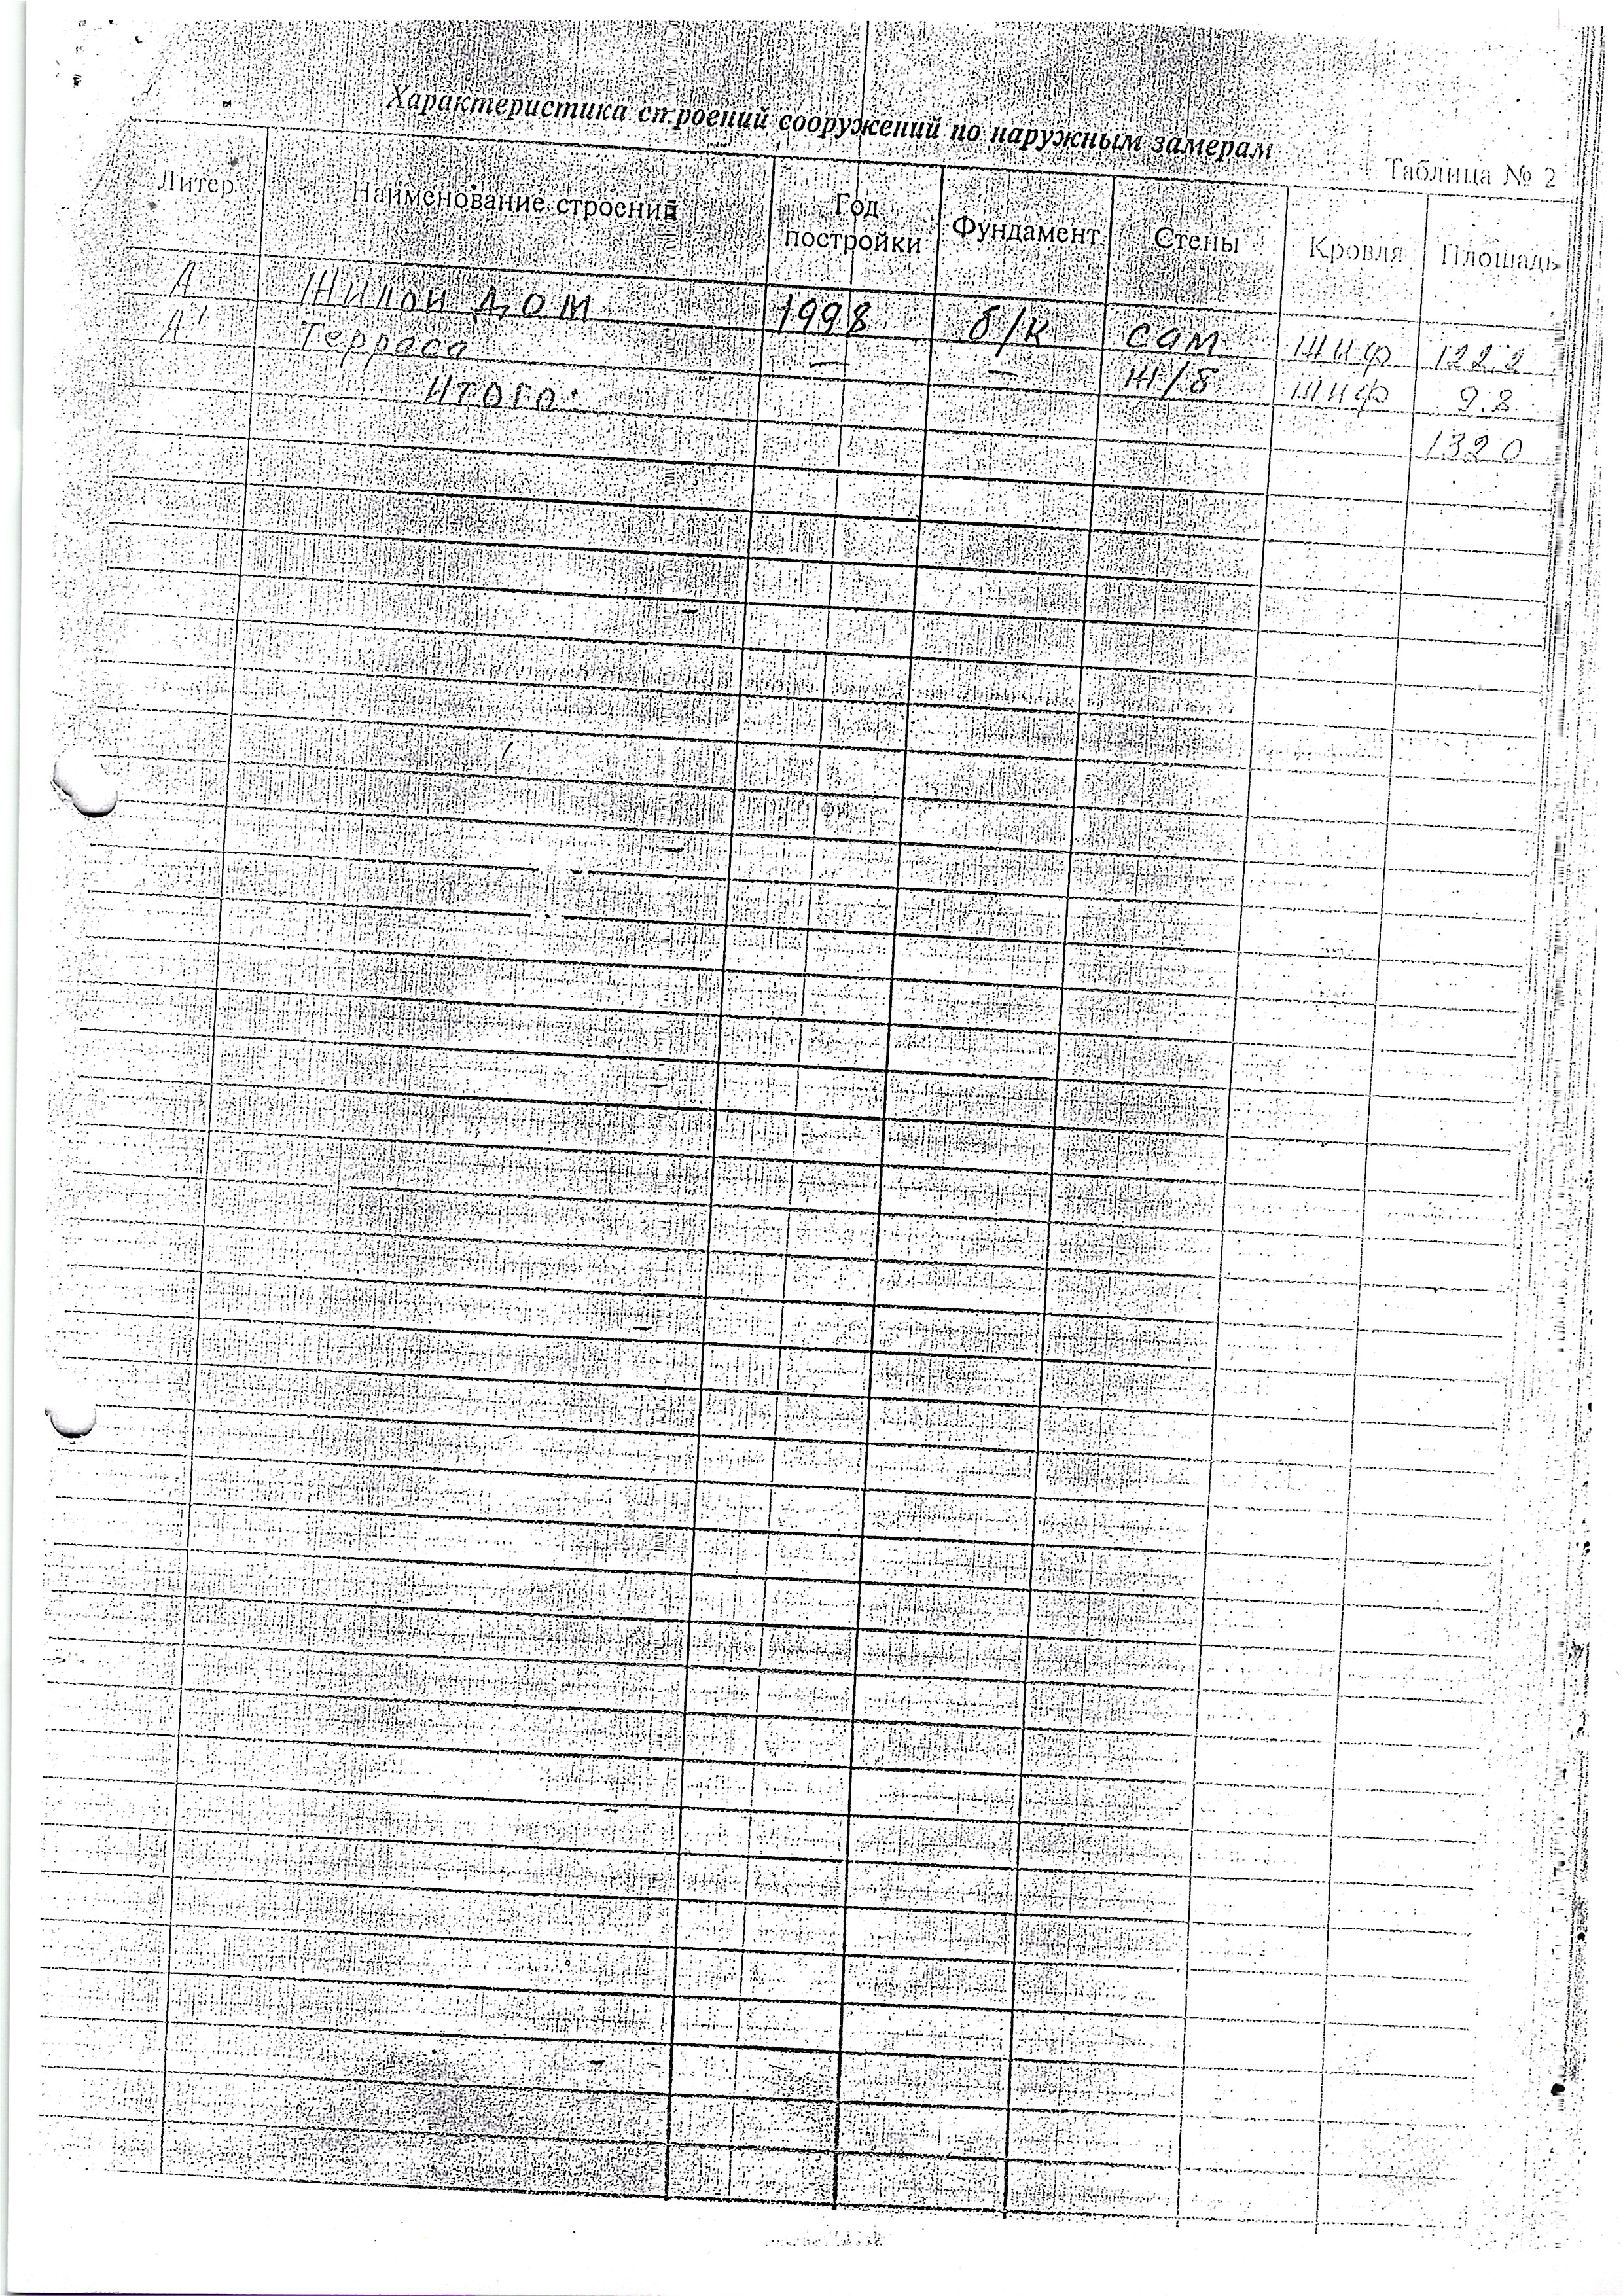 Характеристика строений сооружений по наружным замерам
Таблица № 2
Литер Наименование строений Год постройки Фундамент Стены Кровля Площадь
А Жилой дом 1998 б/к сам шиф 122.2
А' Терраса — — ж/б шиф 9.8
Итого: 132.0